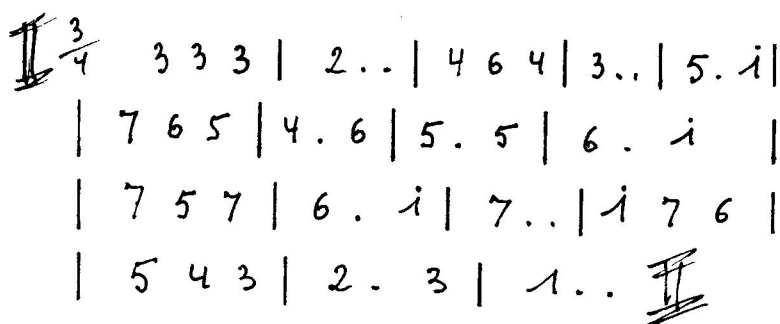 3/4 3 3 3 | 2 . . | 4 6 4 | 3 . . | 5 . i |
| 7 6 5 | 4 . 6 | 5 . 5 | 6 . i |
| 7 5 7 | 6 . i | 7 . . | i 7 6 |
| 5 4 3 | 2 . 3 | 1 . .